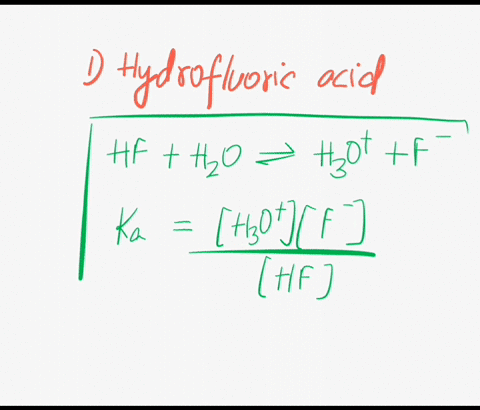 1) Hydrofluoric acid
HF + H₂O ⇌ H₃O⁺ + F⁻
Ka = [H₃O⁺][F⁻]
[HF]